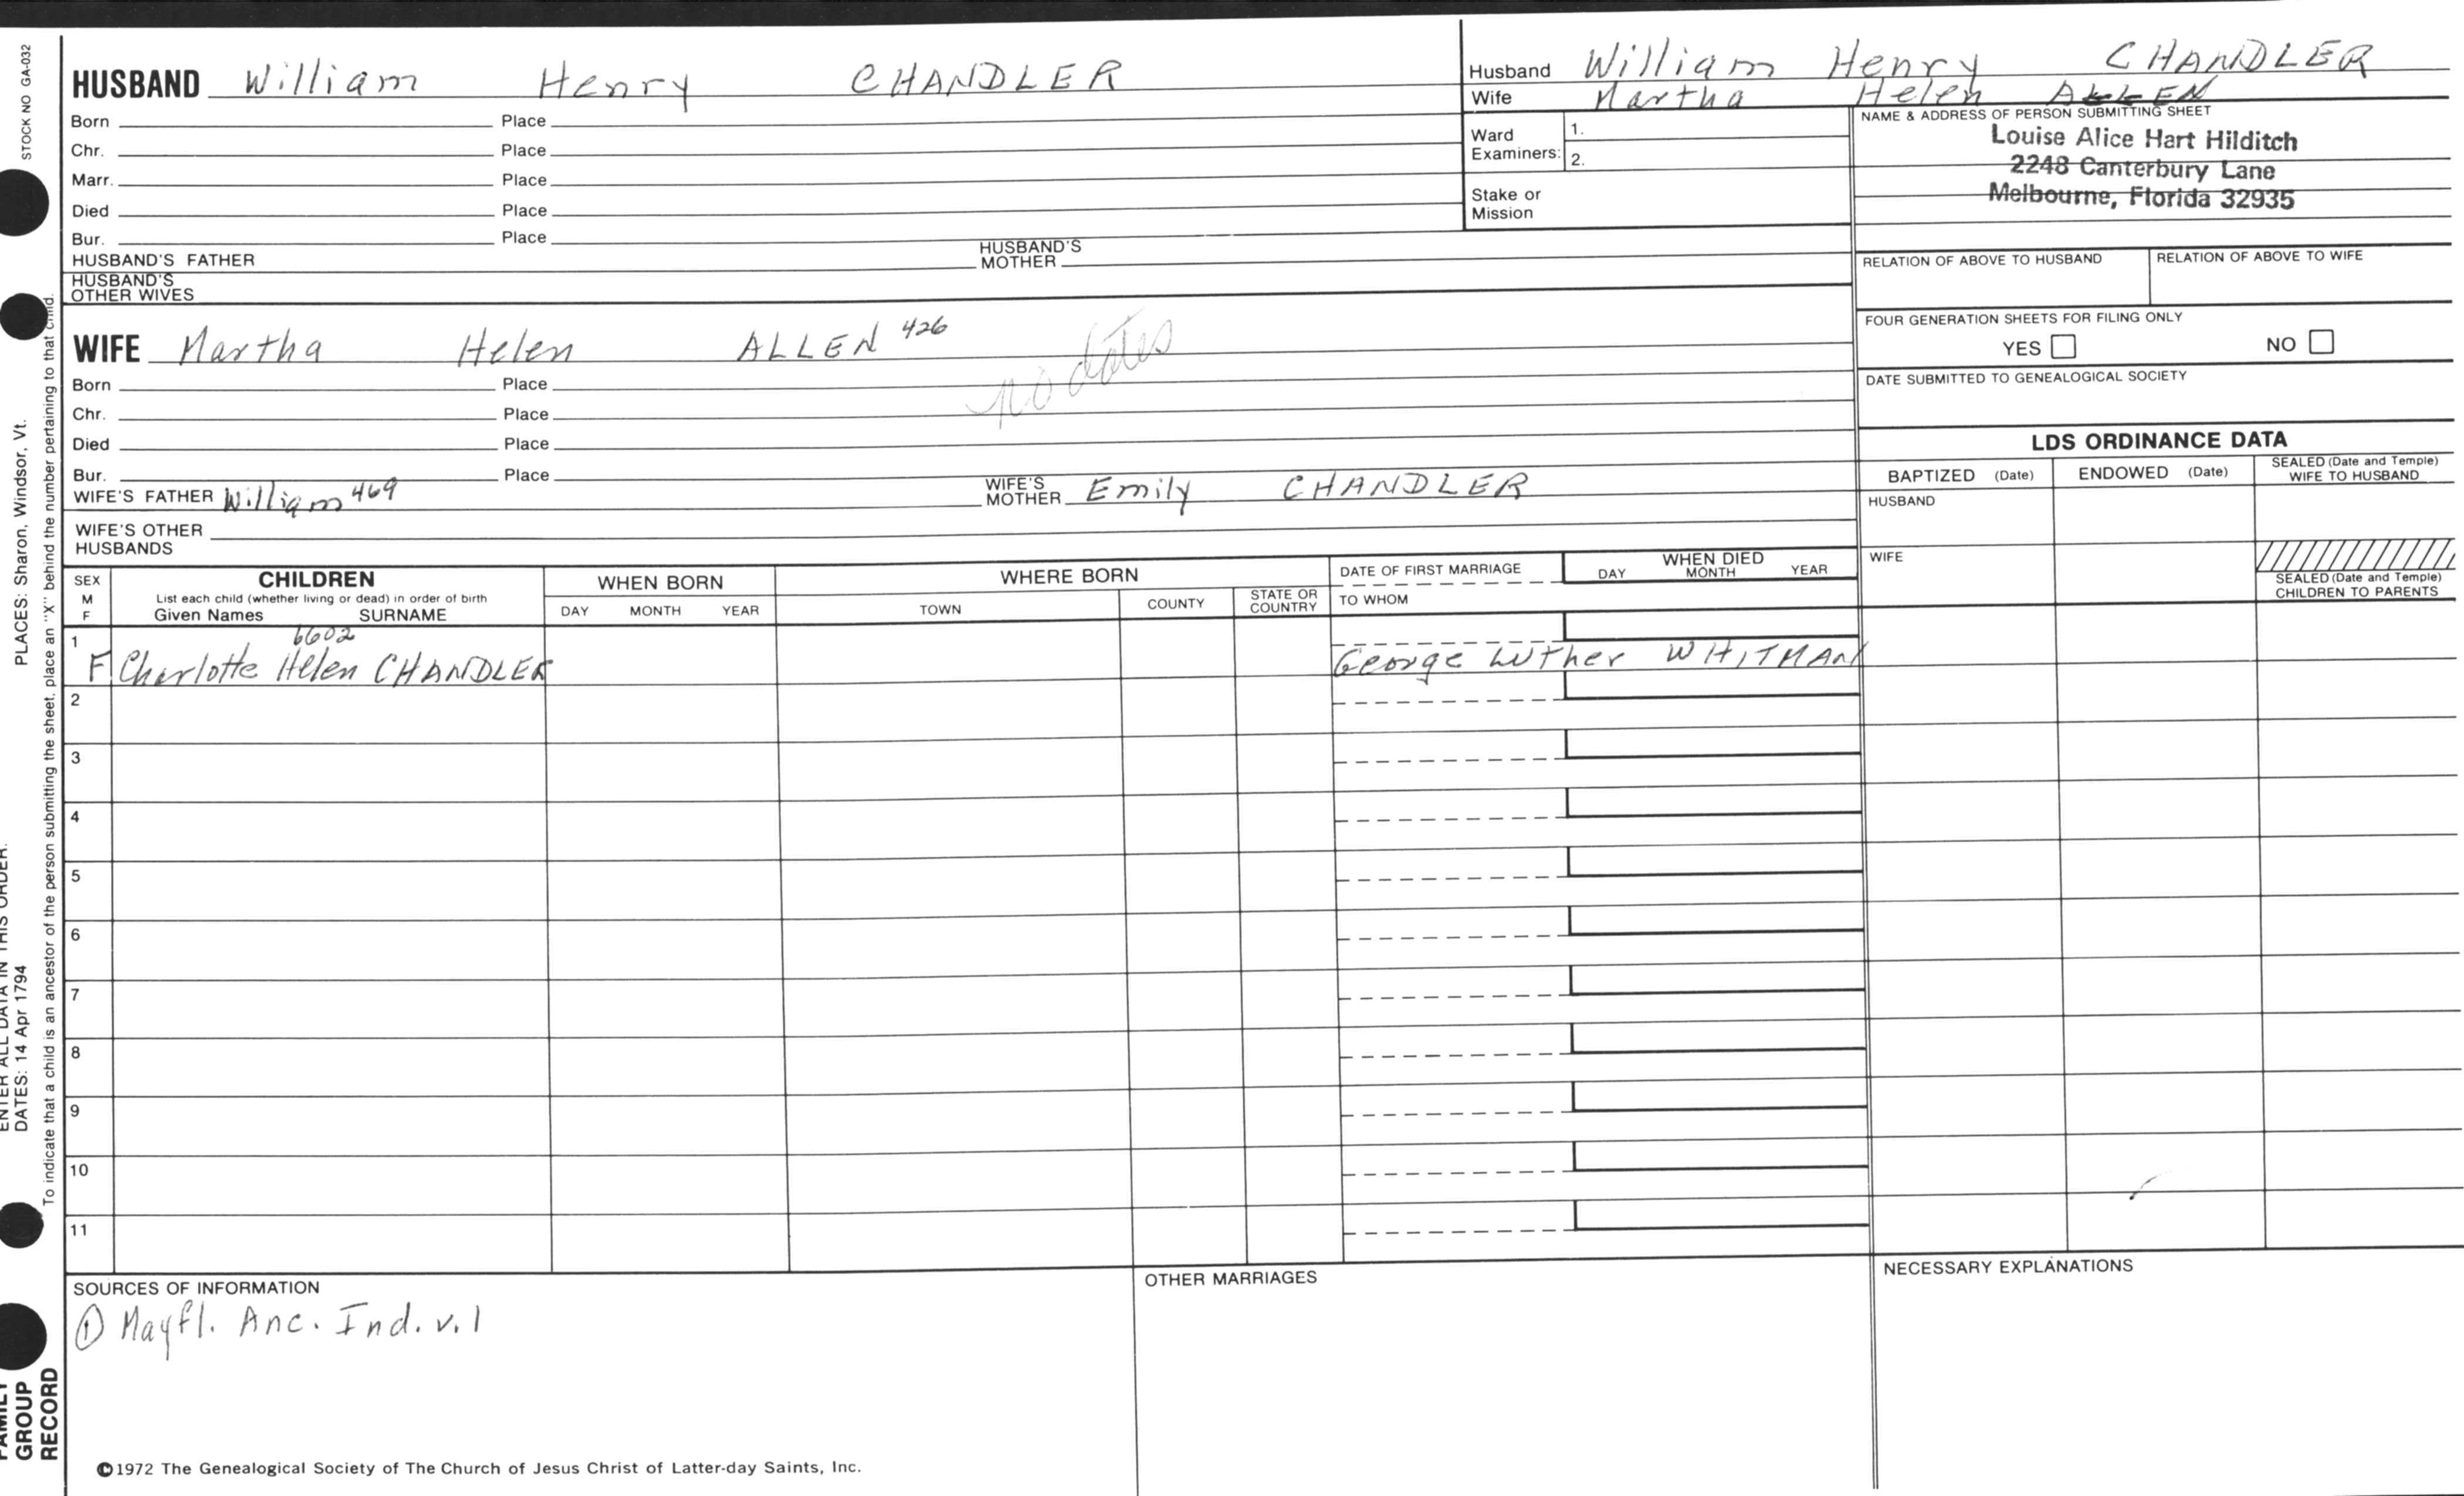 STOCK NO GA-032
PLACES: Sharon, Windsor, Vt.
ENTER ALL DATA IN THIS ORDER:
DATES: 14 Apr 1794
To indicate that a child is an ancestor of the person submitting the sheet, place an "X" behind the number pertaining to that child.
FAMILY
GROUP
RECORD
HUSBAND William Henry CHANDLER
Born Place
Chr. Place
Marr. Place
Died Place
Bur. Place
HUSBAND'S FATHER HUSBAND'S MOTHER
HUSBAND'S
OTHER WIVES
Husband William Henry CHANDLER
Wife Martha Helen ALLEN
Ward
Examiners: 1.
2.
Stake or
Mission
NAME & ADDRESS OF PERSON SUBMITTING SHEET
Louise Alice Hart Hilditch
2248 Canterbury Lane
Melbourne, Florida 32935
RELATION OF ABOVE TO HUSBAND RELATION OF ABOVE TO WIFE
FOUR GENERATION SHEETS FOR FILING ONLY
YES NO
DATE SUBMITTED TO GENEALOGICAL SOCIETY
WIFE Martha Helen ALLEN 426
no dates
Born Place
Chr. Place
Died Place
Bur. Place
WIFE'S FATHER William 469 WIFE'S MOTHER Emily CHANDLER
WIFE'S OTHER
HUSBANDS
LDS ORDINANCE DATA
BAPTIZED (Date) ENDOWED (Date) SEALED (Date and Temple) WIFE TO HUSBAND
HUSBAND
WIFE
SEALED (Date and Temple)
CHILDREN TO PARENTS
SEX
M
F
CHILDREN
List each child (whether living or dead) in order of birth
Given Names SURNAME
WHEN BORN
DAY MONTH YEAR
WHERE BORN
TOWN COUNTY STATE OR COUNTRY
DATE OF FIRST MARRIAGE
TO WHOM
WHEN DIED
DAY MONTH YEAR
1
6602
F Charlotte Helen CHANDLER George Luther WHITMAN
2
3
4
5
6
7
8
9
10
11
SOURCES OF INFORMATION
① Mayfl. Anc. Ind. v. 1
OTHER MARRIAGES
NECESSARY EXPLANATIONS
©1972 The Genealogical Society of The Church of Jesus Christ of Latter-day Saints, Inc.